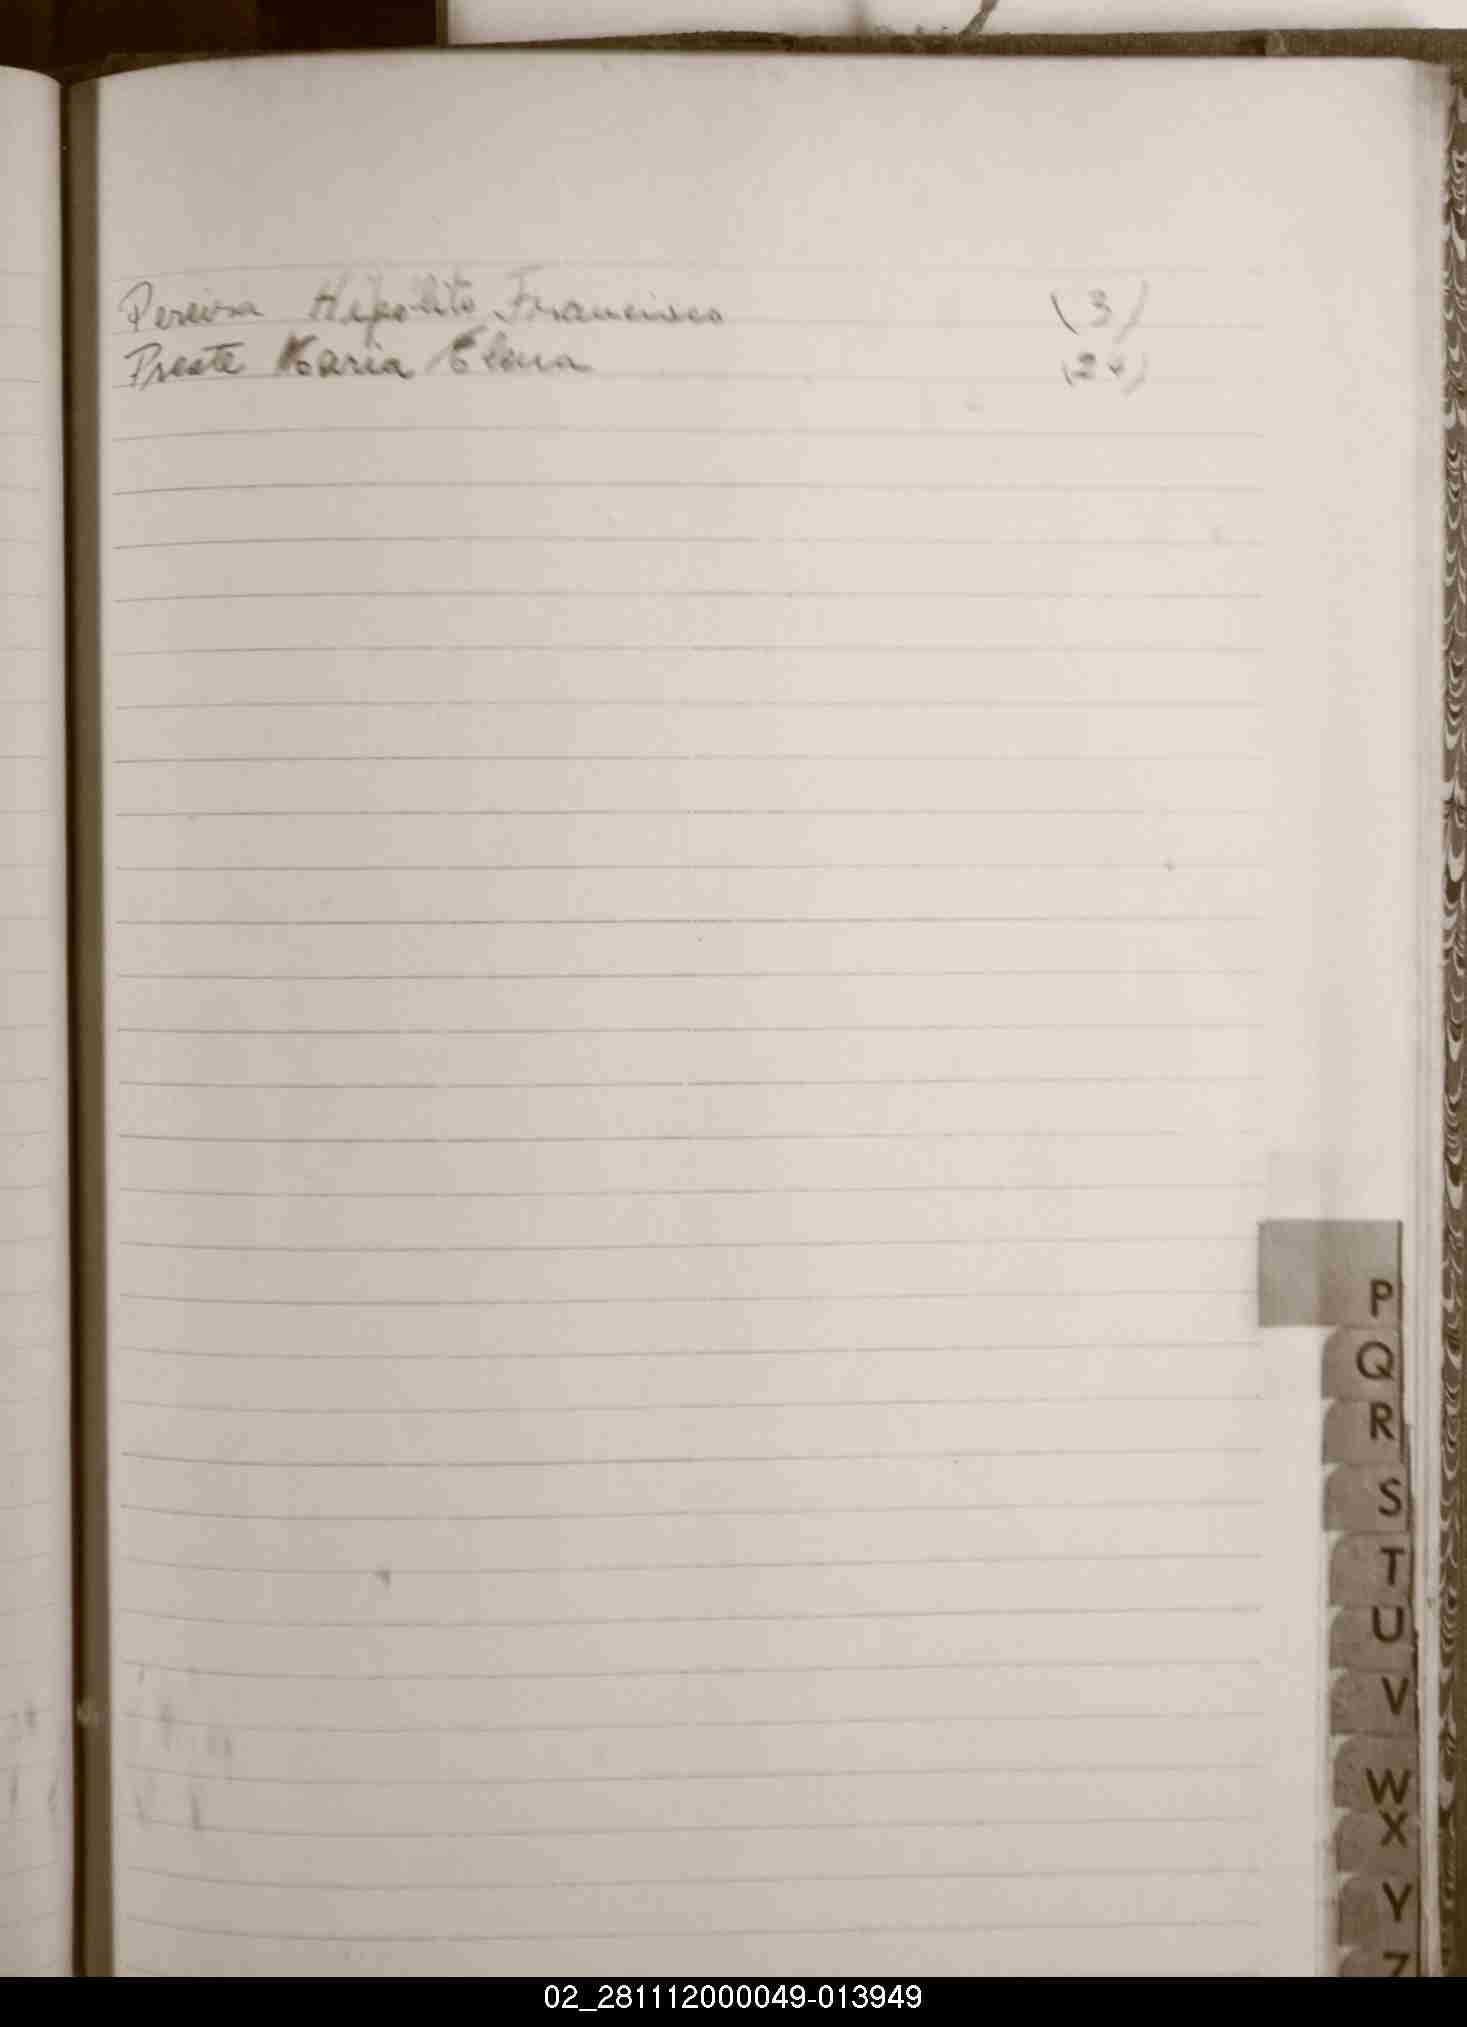 Pereira Hipolito Francisco (3)
Preste Maria Elena
P
Q
R
S
T
U
V
W
X
Y
Z
02_281112000049-013949